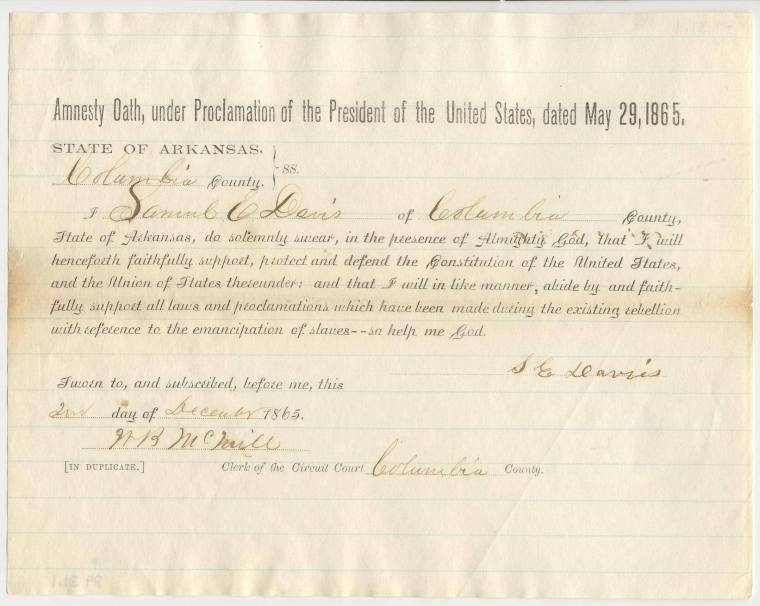 Amnesty Oath, under Proclamation of the President of the United States, dated May 29, 1865.
STATE OF ARKANSAS,
Columbia County. } ss.
I Samuel E Davis of Columbia County,
State of Arkansas, do solemnly swear, in the presence of Almighty God, that I will
henceforth faithfully support, protect and defend the Constitution of the United States,
and the Union of States thereunder: and that I will in like manner, abide by and faith-
fully support all laws and proclamations which have been made during the existing rebellion
with reference to the emancipation of slaves--so help me God.
S E Davis
Sworn to, and subscribed, before me, this
2nd day of December 1865.
W B McNeill
[IN DUPLICATE.] Clerk of the Circuit Court Columbia County.